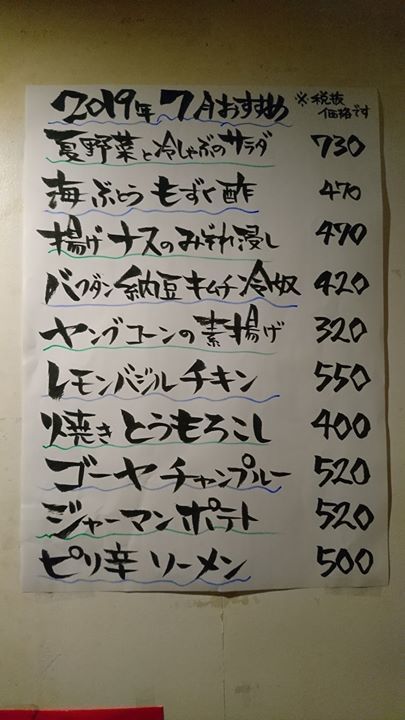 2019年7月おすすめ ※税抜価格です
夏野菜と冷しゃぶのサラダ 730
海ぶどうもずく酢 470
揚げナスのみぞれ浸し 490
バクダン納豆キムチ冷奴 420
ヤングコーンの素揚げ 320
レモンバジルチキン 550
焼きとうもろこし 400
ゴーヤチャンプルー 520
ジャーマンポテト 520
ピリ辛ソーメン 500